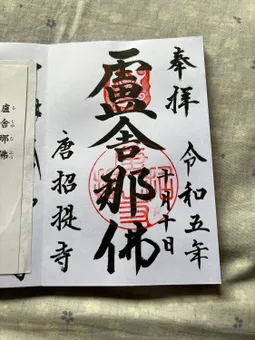 奉拝
令和五年
十月十日
盧舎那佛
唐招提寺
盧舎那佛